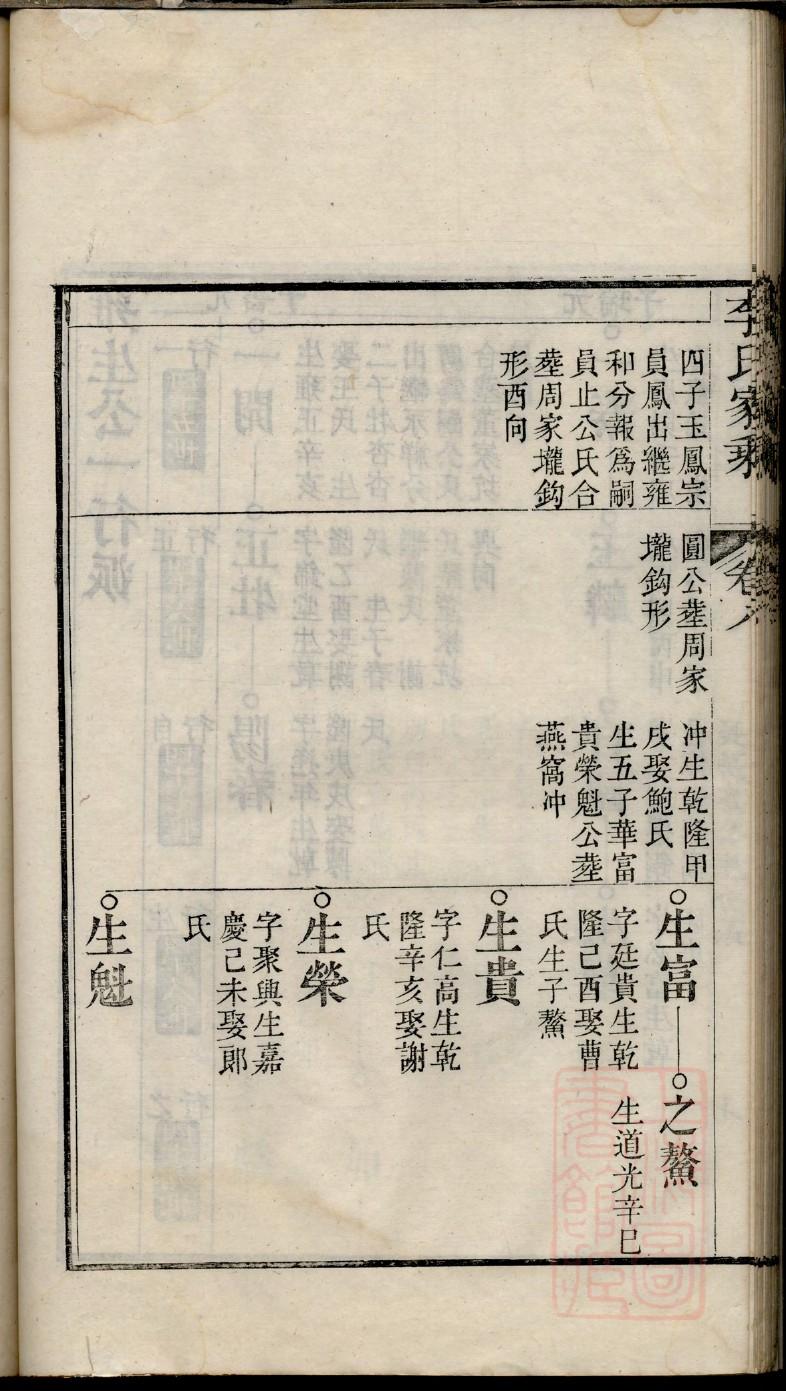 李氏家乘
卷八
四子玉鳳宗
員鳳出繼雍
和分報爲嗣
員止公氏合
塟周家壠鈎
形酉向
圓公塟周家
壠鈎形
冲生乾隆甲
戌娶鮑氏
生五子華富
貴榮魁公塟
燕窩冲
生富
字廷貴生乾
隆己酉娶曹
氏生子鰲
之鰲
生道光辛巳
生貴
字仁高生乾
隆辛亥娶謝
氏
生榮
字聚興生嘉
慶己未娶郎
氏
生魁